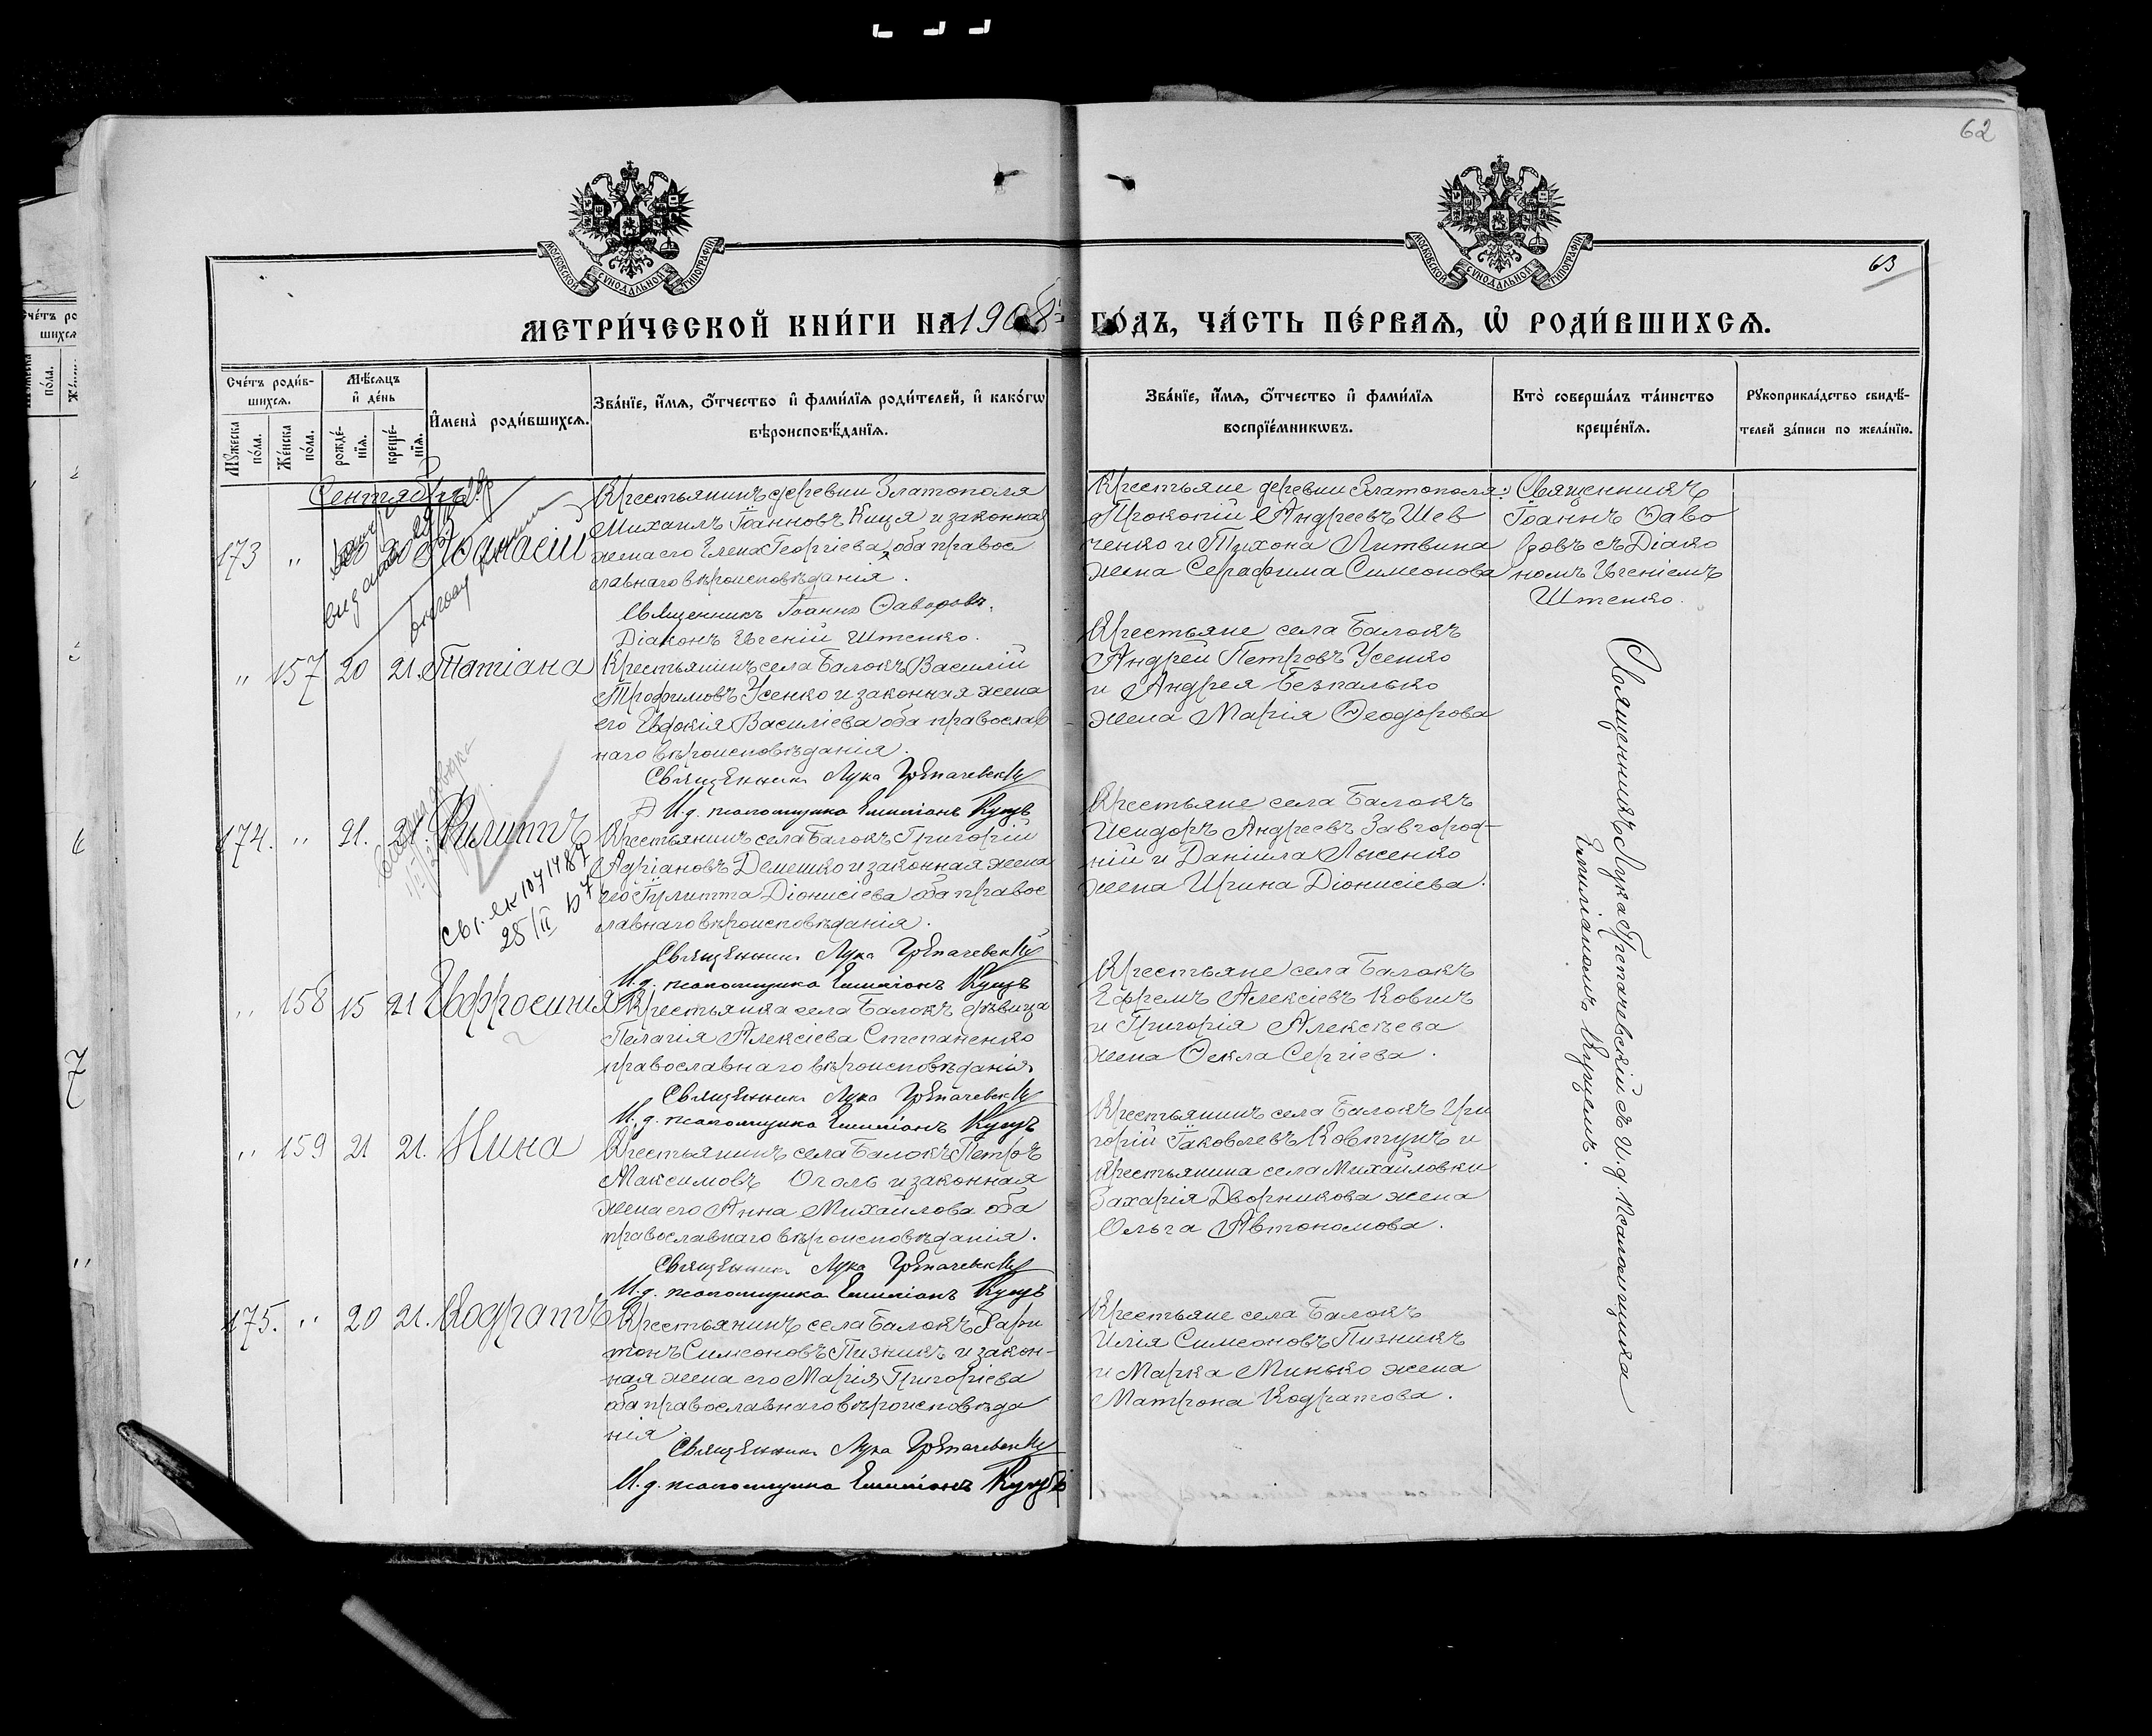 62
63
МОСКОВСКОЙ СѴНОДАЛЬНОЙ ТИПОГРАФІИ
МОСКОВСКОЙ СѴНОДАЛЬНОЙ ТИПОГРАФІИ
МЕТРИ́ЧЕСКОЙ КНИ́ГИ НА 1908 ГО́ДЪ, ЧА́СТЬ ПЕ́РВАѦ, Ѡ РОДИ́ВШИХСѦ.
Сче́тъ роди́в-
шихсѧ.
Мѹ́жеска
по́ла.
Же́нска
по́ла.
Мѣ́сѧцъ
и҆ де́нь
рожде́-
нїѧ.
креще́-
нїѧ.
И҆мена̀ роди́вшихсѧ.
Зва́нїе, и҆́мѧ, ѻ҆́тчество и҆ фами́лїѧ роди́телей, и҆ како́гѡ
вѣроисповѣ́данїѧ.
Зва́нїе, и҆́мѧ, ѻ҆́тчество и҆ фами́лїѧ
воспрїе́мникѡвъ.
Кто̀ соверша́лъ та́инство
креще́нїѧ.
Рѹкоприкла́дство свидѣ́-
телей за́писи по жела́нїю.
Сентябрь
173 " 20
Крестьянинъ деревни Златополя
Михаилъ Іоанновъ Киця и законная
жена его Елена Георгіева, оба правос
лавнаго вѣроисповѣданія.
Священникъ Іоаннъ Ѳаворовъ.
Діаконъ Евгеній Штепко.
Крестьяне деревни Златополя:
Прокопій Андреевъ Шев
ченко и Тихона Литвина
жена Серафима Симеонова
Священникъ
Іоаннъ Ѳаво
ровъ съ Діако
номъ Евгеніемъ
Штепко.
" 157 20 21. Татіана
Крестьянинъ села Балокъ Василій
Трофимовъ Усенко и законная жена
его Евдокія Василіева оба православ
наго вѣроисповѣданія.
Священникъ Лука Грепачевскій
И. д. псаломщика Емиліанъ Куцъ
Крестьяне села Балокъ
Андрей Петровъ Усенко
и Андрея Безпалько
жена Марія Ѳеодорова
174. " 21. 21. Филиппъ
Св. 1071489
28/II
Крестьянинъ села Балокъ Григорій
Адріановъ Демешко и законная жена
его Іулитта Діонисіева оба правос
лавнаго вѣроисповѣданія.
Священникъ Лука Грепачевскій
И. д. псаломщика Емиліанъ Куцъ
Крестьяне села Балокъ
Исидоръ Андреевъ Завгород-
ній и Даніила Лысенко
жена Ирина Діонисіева.
" 158 15 21 Евфросинія
Крестьянка села Балокъ дѣвица
Пелагія Алексіева Степаненко
православнаго вѣроисповѣданія.
Священникъ Лука Грепачевскій
И. д. псаломщика Емиліанъ Куцъ
Крестьяне села Балокъ
Ефремъ Алексіевъ
и Григорія Алексѣева
жена Ѳекла Сергіева.
" 159 21 21. Нина
Крестьянинъ села Балокъ Петръ
Максимовъ Оголь и законная
жена его Анна Михайлова оба
православнаго вѣроисповѣданія.
Священникъ Лука Грепачевскій
И. д. псаломщика Емиліанъ Куцъ
Крестьянинъ села Балокъ Гри
горій Іаковлевъ Ковтунъ и
крестьянина села Михайловки
Захарія Дворникова жена
Ольга Автономова.
175. " 20 21. Кодратъ
Крестьянинъ села Балокъ Хари
тонъ Симеоновъ Пизникъ и закон-
ная жена его Марія Григоріева
оба православнаго вѣроисповѣда
нія.
Священникъ Лука Грепачевскій
И. д. псаломщика Емиліанъ Куцъ
Крестьяне села Балокъ
Илія Симеоновъ Пизникъ
и Марка Минько жена
Матрона Кодратова.
Священникъ Лука Грепачевскій съ И. д. псаломщика
Емиліаномъ Куцемъ.